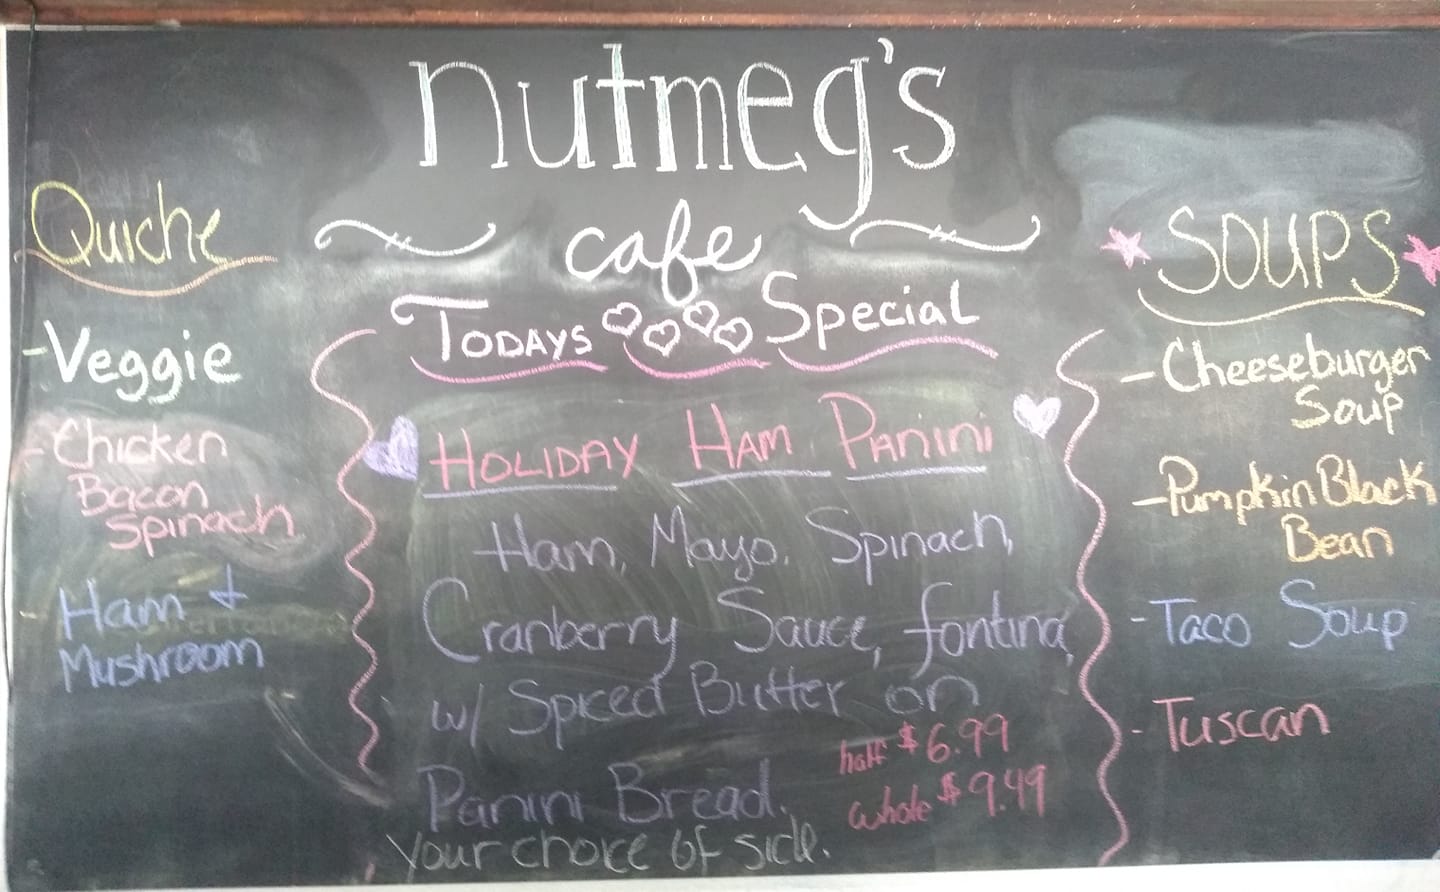 nutmeg's
cafe
Quiche
-Veggie
- Chicken
Bacon
Spinach
- Ham +
Mushroom
TODAYS Special
HOLIDAY HAM PANINI
Ham, Mayo, Spinach,
Cranberry Sauce, fontina,
w/ Spiced Butter on
Panini Bread.
half $6.99
whole $9.49
your choice of side.
SOUPS
- Cheeseburger
Soup
- Pumpkin Black
Bean
- Taco Soup
- Tuscan